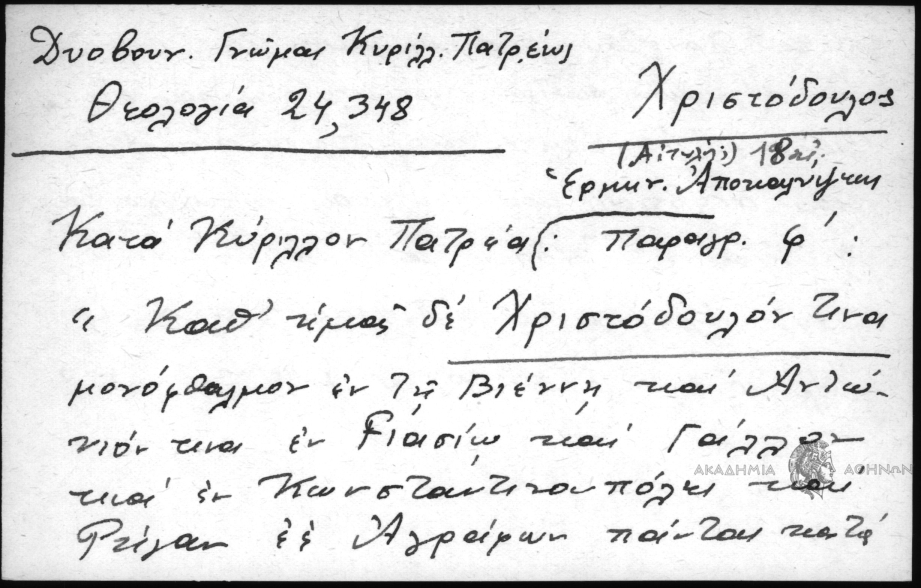 Δυοβουν. Γνῶμαι Κυρίλλ. Πατρέως
Θεολογία 24, 348
Χριστόδουλος
18
Ἑρμην. Ἀποκαλύψεως
Κατά Κύριλλον Πατρέα: Παραγρ. φ΄:
"Καθ' ἡμᾶς δέ Χριστόδουλόν τινα
μονόφθαλμον ἐν τῇ Βιέννῃ καί Ἀντώ-
νιόν τινα ἐν Γιασίῳ καί Γάλλον
ἐν Κωνσταντινουπόλει καί
Ρήγαν ἐξ Ἀγράφων πάντας κατά
ΑΚΑΔΗΜΙΑ ΑΘΗΝΩΝ